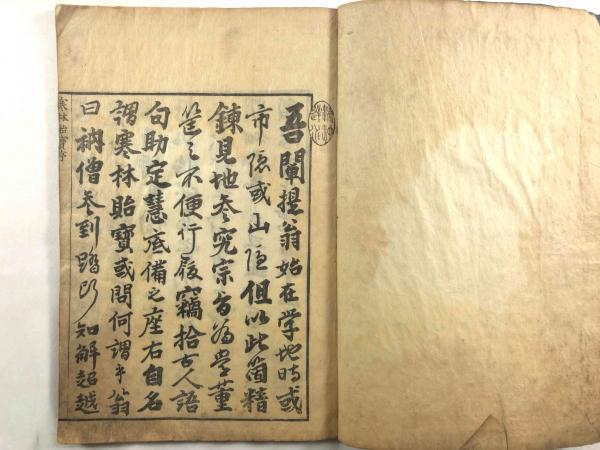 吾闡提翁始在学地時或
市隠或山隠但以此箇精
錬見地参究宗旨為是董
笔之不便行履窃拾古人語
句助定慧底備之座右自名
謂寒林貽寶或問何謂乎翁
曰衲僧参到踏断知解超越
寒林貽寶序